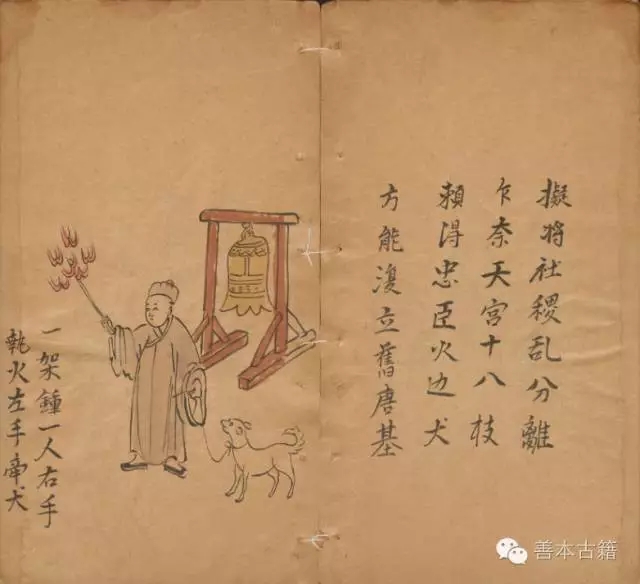 擬将社稷乱分離
乍奈天宮十八枝
頼淂忠臣火边犬
方能復立舊唐基
一架鍾一人右手
執火左手帝犬
善本古籍